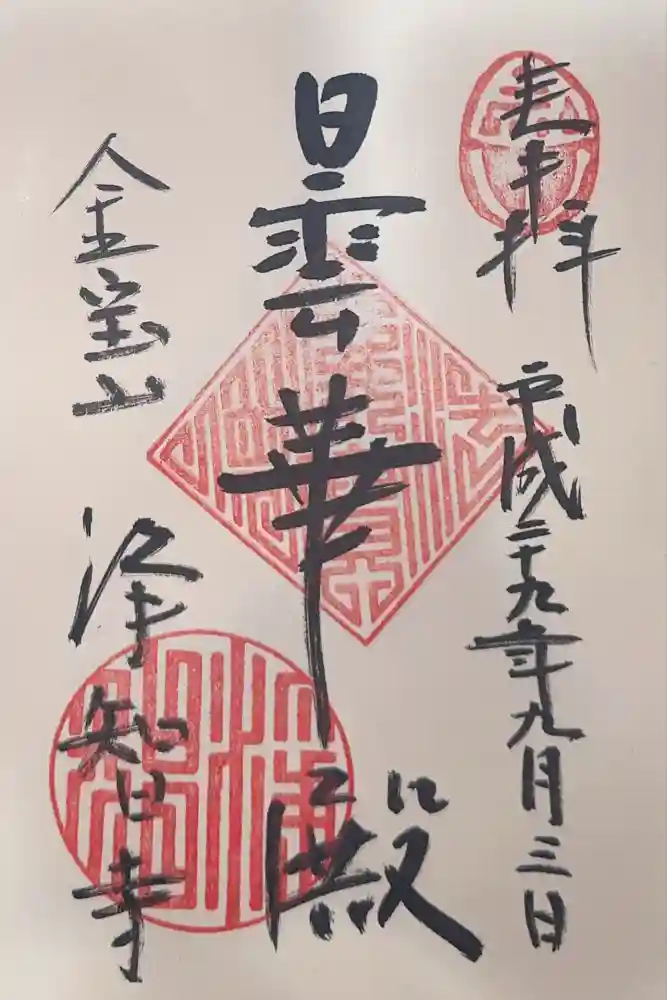 奉拝 平成二十九年九月三日
曇華殿
金宝山 浄智寺